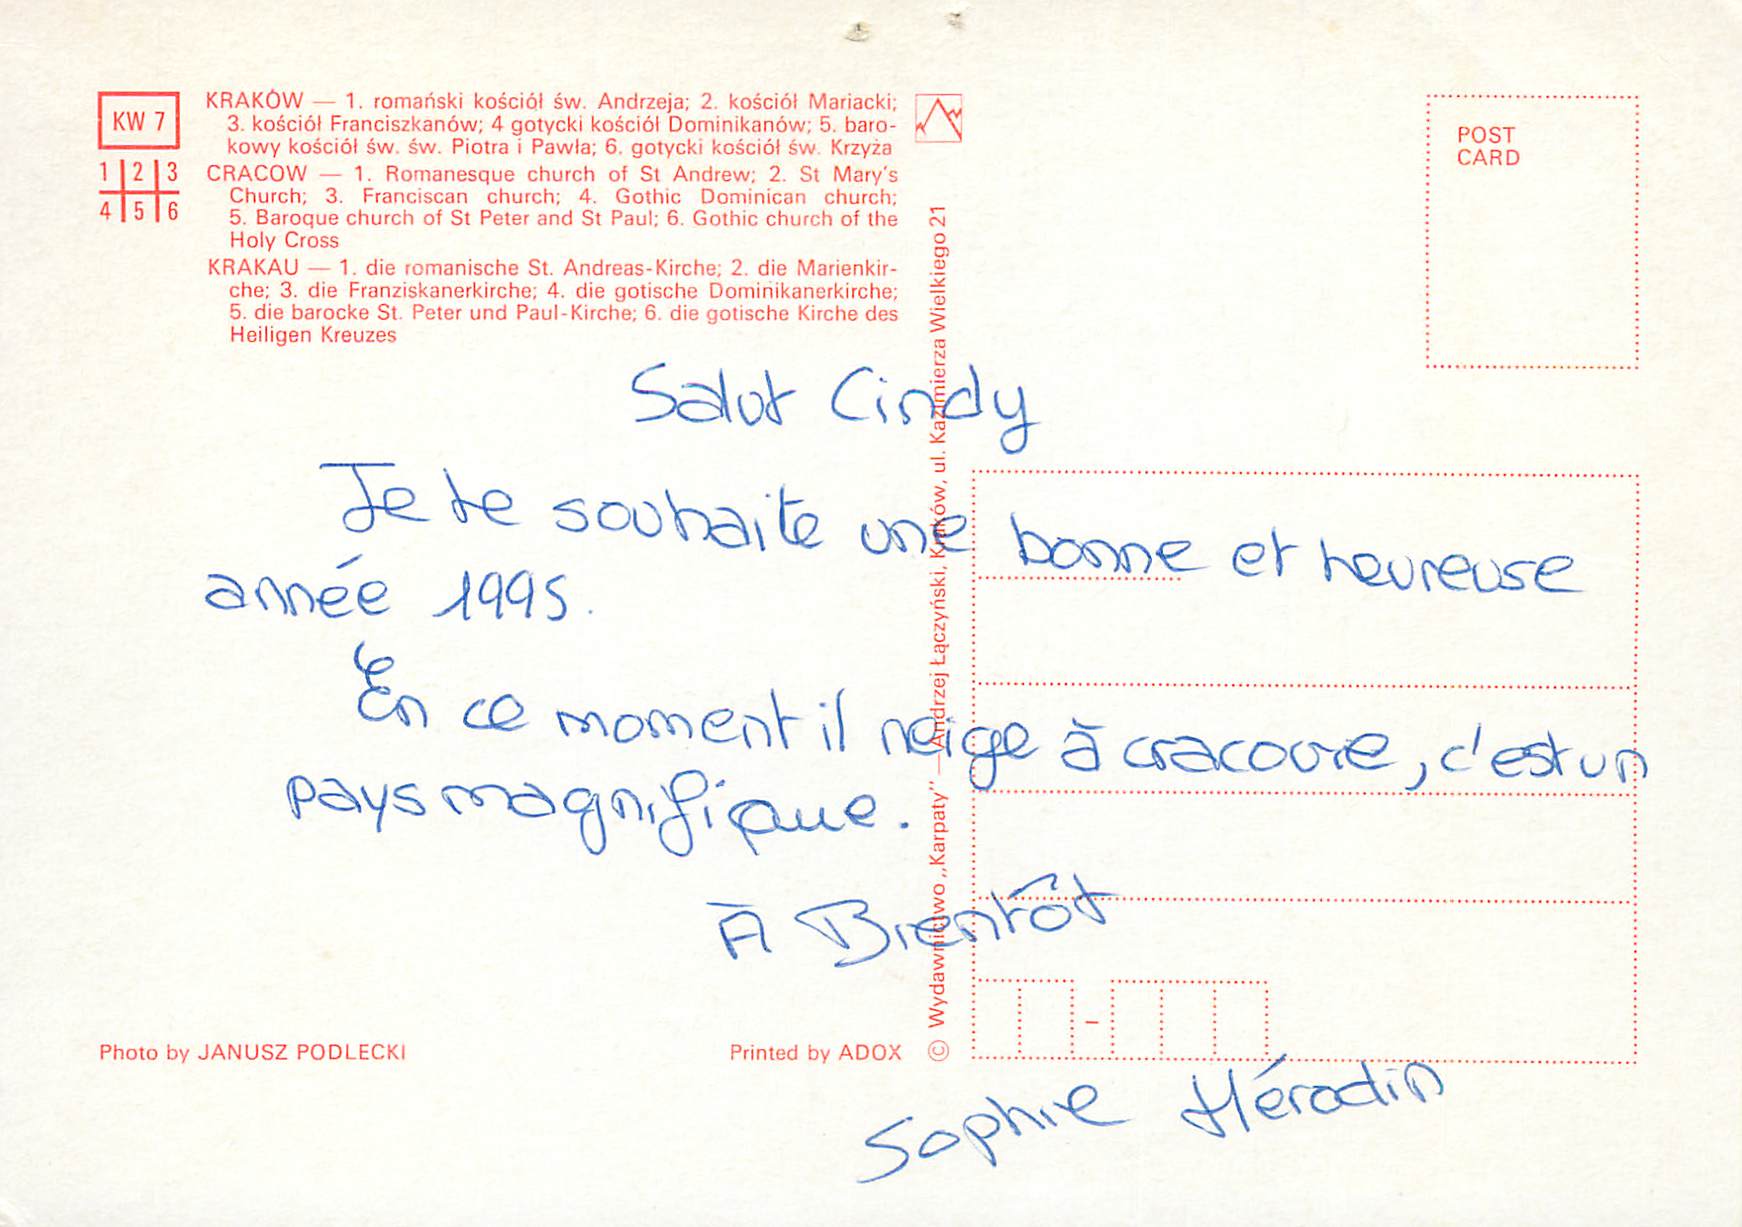 KW 7
1 2 3
4 5 6
KRAKÓW — 1. romański kościół św. Andrzeja; 2. kościół Mariacki;
3. kościół Franciszkanów; 4 gotycki kościół Dominikanów; 5. baro-
kowy kościół św. św. Piotra i Pawła; 6. gotycki kościół św. Krzyża
CRACOW — 1. Romanesque church of St Andrew; 2. St Mary's
Church; 3. Franciscan church; 4. Gothic Dominican church;
5. Baroque church of St Peter and St Paul; 6. Gothic church of the
Holy Cross
KRAKAU — 1. die romanische St. Andreas-Kirche; 2. die Marienkir-
che; 3. die Franziskanerkirche; 4. die gotische Dominikanerkirche;
5. die barocke St. Peter und Paul-Kirche; 6. die gotische Kirche des
Heiligen Kreuzes
POST
CARD
Salut Cindy
Je te souhaite une bonne et heureuse
année 1995.
En ce moment il neige à cracovie, c'est un
pays magnifique.
À Bientôt
Sophie Hérodin
Photo by JANUSZ PODLECKI
Printed by ADOX
© Wydawnictwo „Karpaty” — Andrzej Łączyński, Kraków, ul. Kazimierza Wielkiego 21